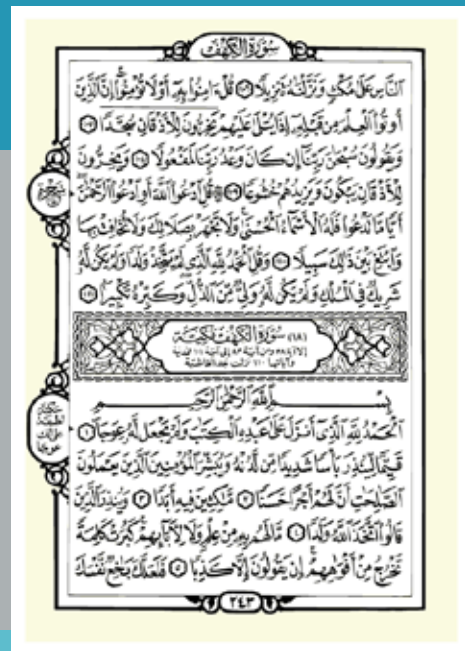 سُورَةُ الكَهْفِ
النَّاسِ عَلَىٰ مُكْثٍ وَنَزَّلْنَٰهُ تَنزِيلًا ۝ قُلْ ءَامِنُوا۟ بِهِۦٓ أَوْ لَا تُؤْمِنُوٓا۟ إِنَّ الَّذِينَ
أُوتُوا۟ الْعِلْمَ مِن قَبْلِهِۦٓ إِذَا يُتْلَىٰ عَلَيْهِمْ يَخِرُّونَ لِلْأَذْقَانِ سُجَّدًا ۝
وَيَقُولُونَ سُبْحَٰنَ رَبِّنَآ إِن كَانَ وَعْدُ رَبِّنَا لَمَفْعُولًا ۝ وَيَخِرُّونَ
لِلْأَذْقَانِ يَبْكُونَ وَيَزِيدُهُمْ خُشُوعًا ۝ قُلِ ادْعُوا۟ اللَّهَ أَوِ ادْعُوا۟ الرَّحْمَٰنَ
أَيًّا مَّا تَدْعُوا۟ فَلَهُ الْأَسْمَآءُ الْحُسْنَىٰ وَلَا تَجْهَرْ بِصَلَاتِكَ وَلَا تُخَافِتْ بِهَا
وَابْتَغِ بَيْنَ ذَٰلِكَ سَبِيلًا ۝ وَقُلِ الْحَمْدُ لِلَّهِ الَّذِى لَمْ يَتَّخِذْ وَلَدًا وَلَمْ يَكُن لَّهُۥ
شَرِيكٌ فِى الْمُلْكِ وَلَمْ يَكُن لَّهُۥ وَلِىٌّ مِّنَ الذُّلِّ وَكَبِّرْهُ تَكْبِيرًا ۝
(١٨) سُورَةُ الكَهْفِ مَكِّيَّة
وآياتها ١١٠ نزلت بعد الغاشية
بِسْمِ اللَّهِ الرَّحْمَٰنِ الرَّحِيمِ
الْحَمْدُ لِلَّهِ الَّذِىٓ أَنزَلَ عَلَىٰ عَبْدِهِ الْكِتَٰبَ وَلَمْ يَجْعَل لَّهُۥ عِوَجَا ۝
قَيِّمًا لِّيُنذِرَ بَأْسًا شَدِيدًا مِّن لَّدُنْهُ وَيُبَشِّرَ الْمُؤْمِنِينَ الَّذِينَ يَعْمَلُونَ
الصَّٰلِحَٰتِ أَنَّ لَهُمْ أَجْرًا حَسَنًا ۝ مَّٰكِثِينَ فِيهِ أَبَدًا ۝ وَيُنذِرَ الَّذِينَ
قَالُوا۟ اتَّخَذَ اللَّهُ وَلَدًا ۝ مَّا لَهُم بِهِۦ مِنْ عِلْمٍ وَلَا لِءَابَآئِهِمْ كَبُرَتْ كَلِمَةً
تَخْرُجُ مِنْ أَفْوَٰهِهِمْ إِن يَقُولُونَ إِلَّا كَذِبًا ۝ فَلَعَلَّكَ بَٰخِعٌ نَّفْسَكَ
٢٤٣